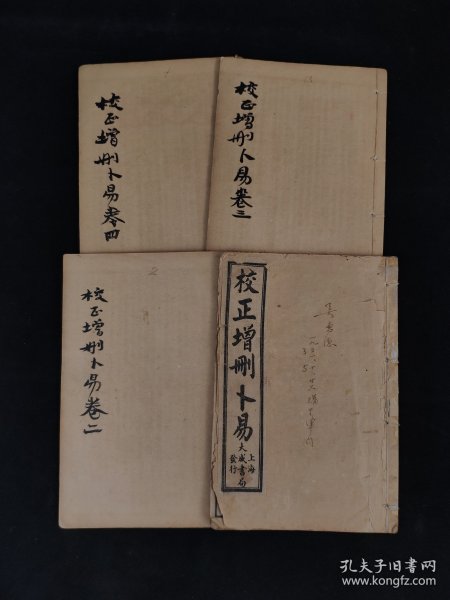 校正增刪卜易卷四
校正增刪卜易卷三
校正增刪卜易卷二
校正增刪卜易
上海
大成書局
發行
孔夫子旧书网
www.kongfz.com